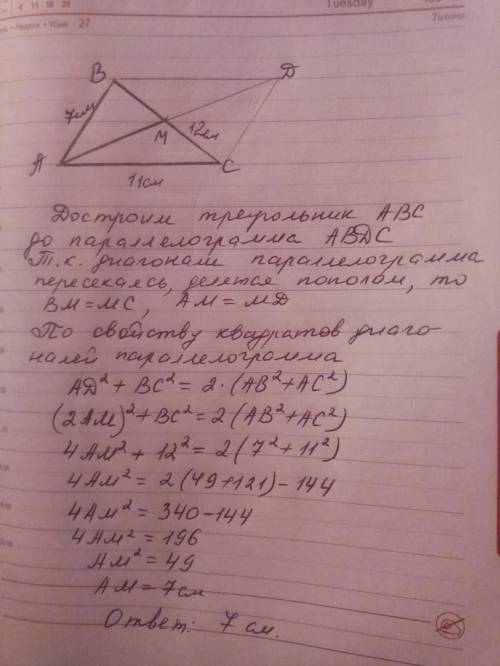 4 11 18 25
Tuesday
Неделя • Week - 27
B
D
7см
M
12см
A
C
11см
Достроим треугольник ABC
до параллелограмма ABDC
Т.к. диагонали параллелограмма
пересекаясь, делятся пополам, то
BM=MC, AM=MD
По свойству квадратов диаго-
налей параллелограмма
AD²+BC²=2·(AB²+AC²)
(2AM)²+BC²=2(AB²+AC²)
4AM²+12²=2(7²+11²)
4AM²=2(49+121)-144
4AM²=340-144
4AM²=196
AM²=49
AM=7см
Ответ: 7 см.